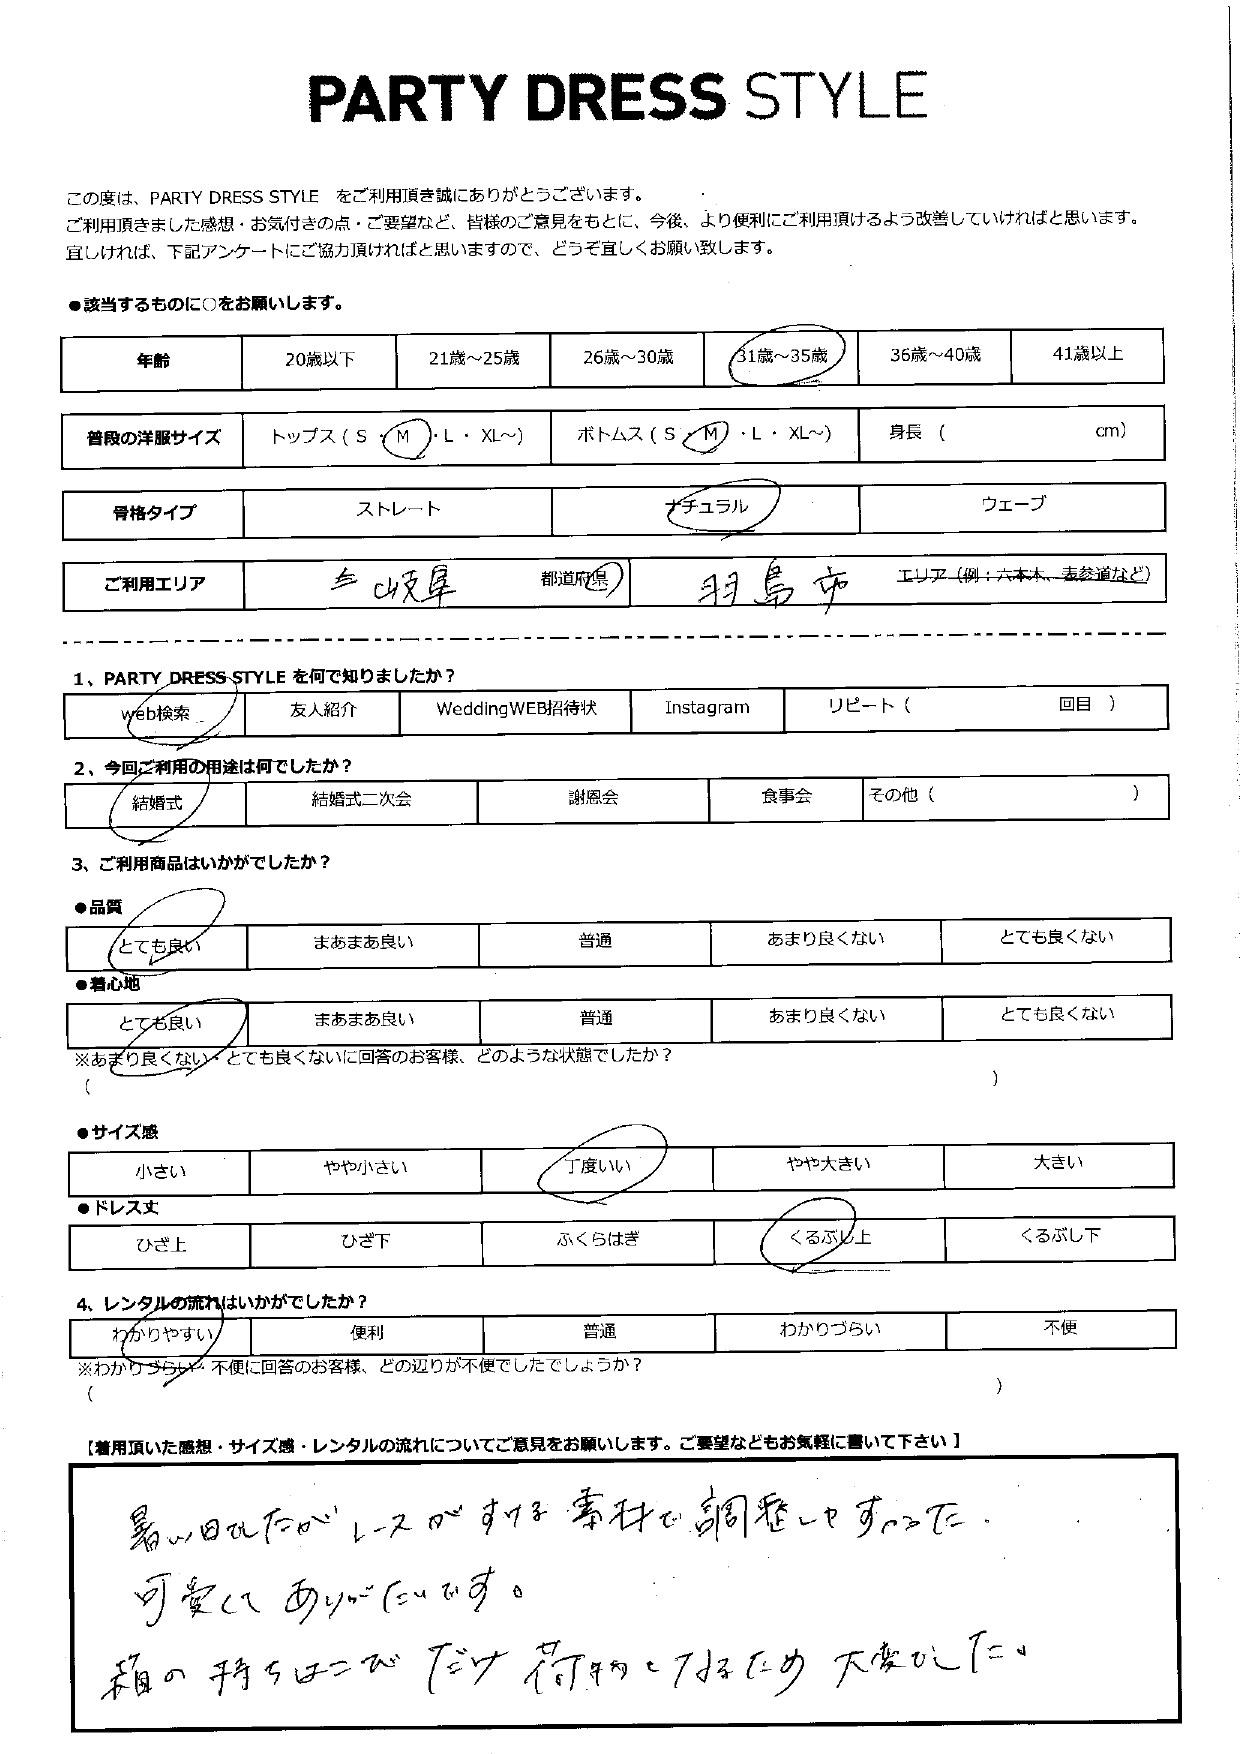 PARTY DRESS STYLE
この度は、PARTY DRESS STYLE をご利用頂き誠にありがとうございます。
ご利用頂きました感想・お気付きの点・ご要望など、皆様のご意見をもとに、今後、より便利にご利用頂けるよう改善していければと思います。
宜しければ、下記アンケートにご協力頂ければと思いますので、どうぞ宜しくお願い致します。
●該当するものに○をお願いします。
年齢 20歳以下 21歳～25歳 26歳～30歳 31歳～35歳 36歳～40歳 41歳以上
普段の洋服サイズ トップス ( S ・ M ・ L ・ XL～) ボトムス ( S ・ M ・ L ・ XL～) 身長 ( cm)
骨格タイプ ストレート ナチュラル ウェーブ
ご利用エリア 岐阜 都道府県 羽島市 エリア（例：六本木、表参道など）
1、PARTY DRESS STYLE を何で知りましたか？
web検索 友人紹介 WeddingWEB招待状 Instagram リピート ( 回目 )
2、今回ご利用の用途は何でしたか？
結婚式 結婚式二次会 謝恩会 食事会 その他 ( )
3、ご利用商品はいかがでしたか？
●品質
とても良い まあまあ良い 普通 あまり良くない とても良くない
●着心地
とても良い まあまあ良い 普通 あまり良くない とても良くない
※あまり良くない・とても良くないに回答のお客様、どのような状態でしたか？
( )
●サイズ感
小さい やや小さい 丁度いい やや大きい 大きい
●ドレス丈
ひざ上 ひざ下 ふくらはぎ くるぶし上 くるぶし下
4、レンタルの流れはいかがでしたか？
わかりやすい 便利 普通 わかりづらい 不便
※わかりづらい・不便に回答のお客様、どの辺りが不便でしたでしょうか？
( )
【着用頂いた感想・サイズ感・レンタルの流れについてご意見をお願いします。ご要望などもお気軽に書いて下さい】
暑い日でしたがレースがすける素材で調整しやすかった.
可愛くてありがたいです。
箱の持ちはこびだけ荷物となるため大変でした。